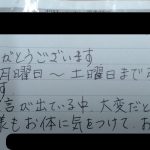 がとうございます
月曜日～土曜日まで
す
言が出ている中、大変だと
様もお体に気をつけて、お